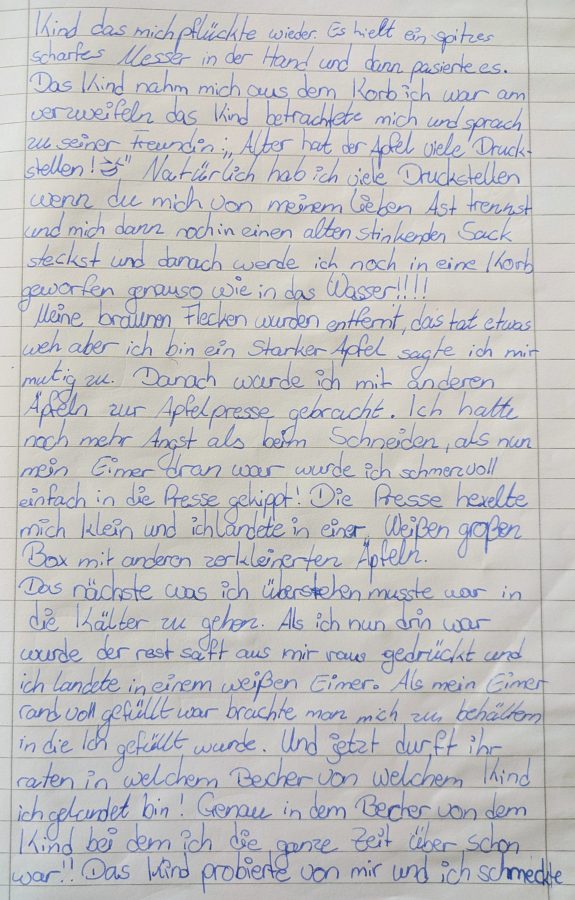 Kind das mich pflückte wieder. Es hielt ein spitzes
scharfes Messer in der Hand und dann pasierte es.
Das Kind nahm mich aus dem Korb ich war am
verzweifeln das Kind betrachtete mich und sprach
zu seiner Freundin: „Alter hat der Apfel viele Druck-
stellen!" Natürlich hab ich viele Druckstellen
wenn du mich von meinem lieben Ast trennst
und mich dann noch in einen alten stinkenden Sack
steckst und danach werde ich noch in eine Korb
geworfen genauso wie in das Wasser!!!!
Meine braunen Flecken wurden entfernt, das tat etwas
weh aber ich bin ein Starker Apfel sagte ich mir
mutig zu. Danach wurde ich mit anderen
Äpfeln zur Apfelpresse gebracht. Ich hatte
noch mehr Angst als beim Schneiden, als nun
mein Eimer dran war wurde ich schmerzvoll
einfach in die Presse gekippt! Die Presse hexelte
mich klein und ich landete in einer Weißen großen
Box mit anderen zerkleinerten Äpfeln.
Das nächste was ich überstehen musste war in
die Kälter zu gehen. Als ich nun drin war
wurde der rest saft aus mir raus gedrückt und
ich landete in einem weißen Eimer. Als mein Eimer
rand voll gefüllt war brachte man mich zu behältern
in die Ich gefüllt wurde. Und jetzt durft ihr
raten in welchem Becher von welchem Kind
ich gelandet bin! Genau in dem Becher von dem
Kind bei dem ich die ganze Zeit über schon
war!! Das Kind probierte von mir und ich schmeckte